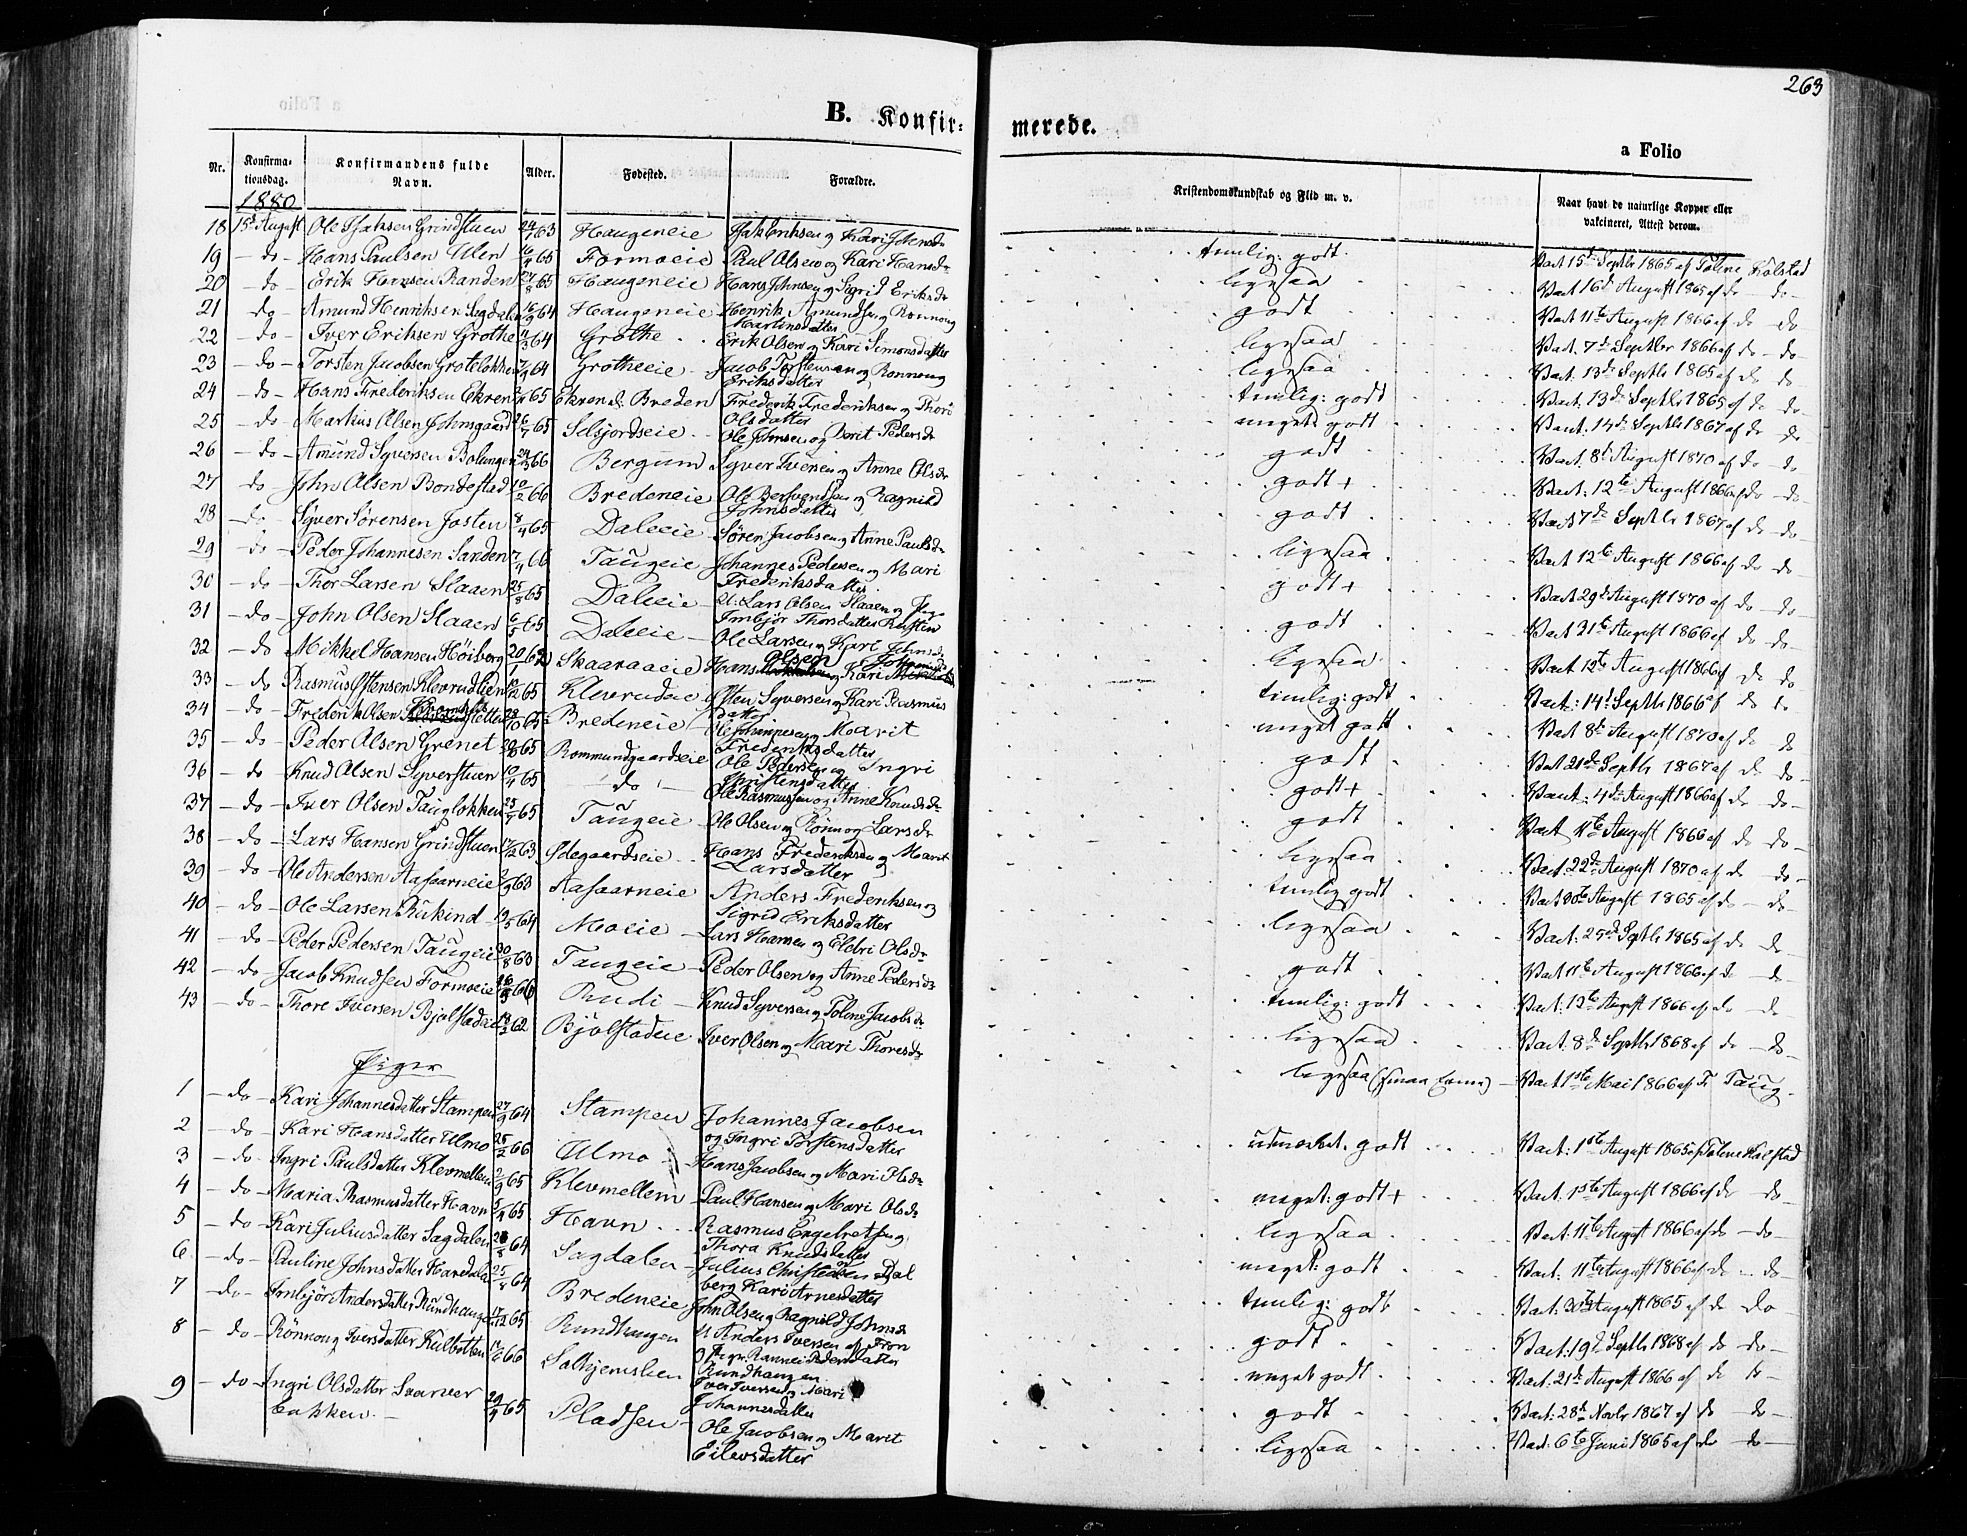 263
B. Konfir-
merede.
a Folio
Nr.
Konfirma-
tionsdag.
Konfirmandens fulde
Navn.
Alder.
Fødested.
Forældre.
Kristendomskundskab og Flid m. v.
Naar havt de naturlige Kopper eller
vakcineret, Attest derom.
1880
18 15d August Ole Grindstuen 63 Haugeneie Eriksen og Kari Johnsd. temlig: godt. Vact. 15d Septbr 1865 af Toline Kolstad
19 - do - Hans Paulsen Ulen 65 Formoeie Paul Olsen og Kari Hansd. ligesaa Vact. 16d August 1865 af do - do -
20 - do - Erik Hansen Randen 65 Haugeneie Hans Johnsen og Sigrid Eriksd. godt Vact. 11te August 1866 af do - do
21 do - Amund Henriksen Sagdalen 64 Haugeneie Henrik Amundsen og Rønnoug
Martinsdatter ligesaa Vact. 7d Septbr 1866 af do - do -
22 - do - Iver Eriksen Grothe 11/3 64 Grothe Erik Olsen og Kari Simonsdatter ligesaa Vact. 13de Septbr 1865 af do do -
23 - do - Torsten Jacobsen Grotelokken 64 Grotheeie Jacob Torstensen og Ronnoug
Eriksdatter temlig: godt Vact. 13de Septbr 1865 af do do -
24 - do - Hans Frederiksen Ekren 65 Ekren Breden Frederik Frederiksen og Thori
Olsdatter meget godt Vact. 14de Septbr 1867 af do do
25 - do - Martius Olsen Johnsgaard 26/7 65 Selsjordseie Ole Johnsen og Dorit Pedersd. godt Vact. 8d August 1870 af do - do
26 - do - Amund Syversen Bolongen 24/3 66 Bergum Syver Iversen og Anne Olsd. godt + Vact. 12te August 1866 af do - do -
27 - do John Olsen Bondestad 10/2 66 Bredeneie Ole og Ragnild
Johnsdatter godt Vact. 7de Septbr 1867 af do - do -
28 - do - Syver Sørensen Josten 8/4 65 Daleeie Søren Jacobsen og Anne Paulsd. ligesaa Vact. 12te August 1866 af do do -
29 - do - Peder Johannesen Sanden 7/4 66 Taugeie Johannes Pedersen og Mari
Frederiksdatter godt + Vact. 29d August 1870 af do - do -
30 - do - Thor Larsen Slaaen 25/8 65 Daleeie U: Lars Olsen Slaaen og Pige
Imbjør Thorsdatter godt Vact. 21de August 1866 af do do -
31 - do - John Olsen Slaaen 6/5 65 Daleeie Ole Larsen og Kari Johnsd. ligesaa Vact. 12te August 1866 af do do
32 - do Mikkel Hansen Høiberg 20/1 62 Skaaraaeie Hans Olsen og Kari temlig: godt Vact. 14de Septbr 1866 af do do
33 - do Rasmus Østensen Klevrudlien 65 Klevrudeie Østen Syversen og Kari Rasmus
datter meget godt Vact. 8de August 1870 af do do
34 - do - Frederik Olsen 65 Bredeneie Ole og Marit
Frederiksdatter godt Vact. 21de Septbr 1867 af do do -
35 - do - Peder Olsen Grenet 65 Rommundgaardseie Ole Pedersen og Ingri
Christensdatter godt + Vact. 4de August 1866 af do - do -
36 - do - Knud Olsen Syverstuen 10/4 65 - do - Ole Rasmussen og Anne Knudsd. godt Vact. 11te August 1866 af do do -
37 - do - Iver Olsen Tauglokken 25/7 65 Taugeie Ole Olsen og Rønnog Larsd. ligesaa Vact. 22de August 1870 af do do -
38 - do - Lars Hansen Grindstuen 63 Ødegaardseie Hans Frederiksen og Marit
Larsdatter temlig godt Vact. 20de August 1865 af do - do -
39 - do - Ole Andersen Aasaarneie 2/9 63 Aasaarneie Anders Frederiksen og
Sigrid Eriksdatter ligesaa Vact. 25d Septbr 1865 af do do
40 - do - Ole Larsen Rukind 64 Moeie Lars Hansen og Eldri Olsd. godt Vact. 11te August 1866 af do - do -
41 - do - Peder Pedersen Taugeie 30/8 63 Taugeie Peder Olsen og Anne Pedersd. temlig: godt Vact. 12te August 1866 af do - do
42 - do Jacob Knudsen Formoeie 66 Rudi Knud Syversen og Toline Jacobsd. ligesaa Vact. 8de Septbr 1868 af do - do -
43 - do - Thore Iversen Bjølstadeie 62 Bjølstadeie Iver Olsen og Mari Thoresd. ligesaa Vact. 1ste Mai 1866 af Taug
Piger
1 - do - Kari Johannesdatter Stampen 27/9 64 Stampen Johannes Jacobsen
og Ingri Torstensdatter udmerket godt Vact. 1ste August 1865 af Toline Kolstad
2 - do - Kari Hansdatter Ulmo 25/2 66 Ulmo Hans Jacobsen og Mari Olsd. meget: godt + Vact. 1ste August 1866 af do - do -
3 - do - Ingri Paulsdatter Klevmellem 2/9 65 Klevmellem Paul Hansen og Mari Olsd. ligesaa Vact. 11te August 1866 af do - do -
4 - do - Maria Rasmusdatter Havn 65 Havn Rasmus Engebretsen og
Thora Knudsdatter meget: godt Vact. 11te August 1866 af do - do -
5 - do Kari Juliusdatter Sagdalen 64 Sagdalen Julius Christensen Dal
berg Kari Arnesdatter temlig: godt Vact. 30te August 1865 af do do
6 - do - Pauline Johnsdatter 25/8 64 Bredeneie John Olsen og Ragnild Johnsd. godt Vact. 19d Septbr 1868 af do - do -
7 - do - Imbjør Andersdatter Rundhaugen 65 Rundhaugen U. Anders Iversen af Fron
og Pige Rannei Pedersdatter
Rundhaugen meget godt Vact. 21de August 1866 af do do -
8 - do - Rønnoug Iversdatter Kulbotten 66 Solhjemslien Iver Iversen og Mari
Johannesdatter godt Vact. 28d Novbr 1867 af do - do -
9 - do - Ingri Olsdatter Svarver
bakken. - 29/4 65 Pladsen - Ole Jacobsen og Marit
Eilevsdatter ligesaa Vact. 6te Juni 1865 af do do -